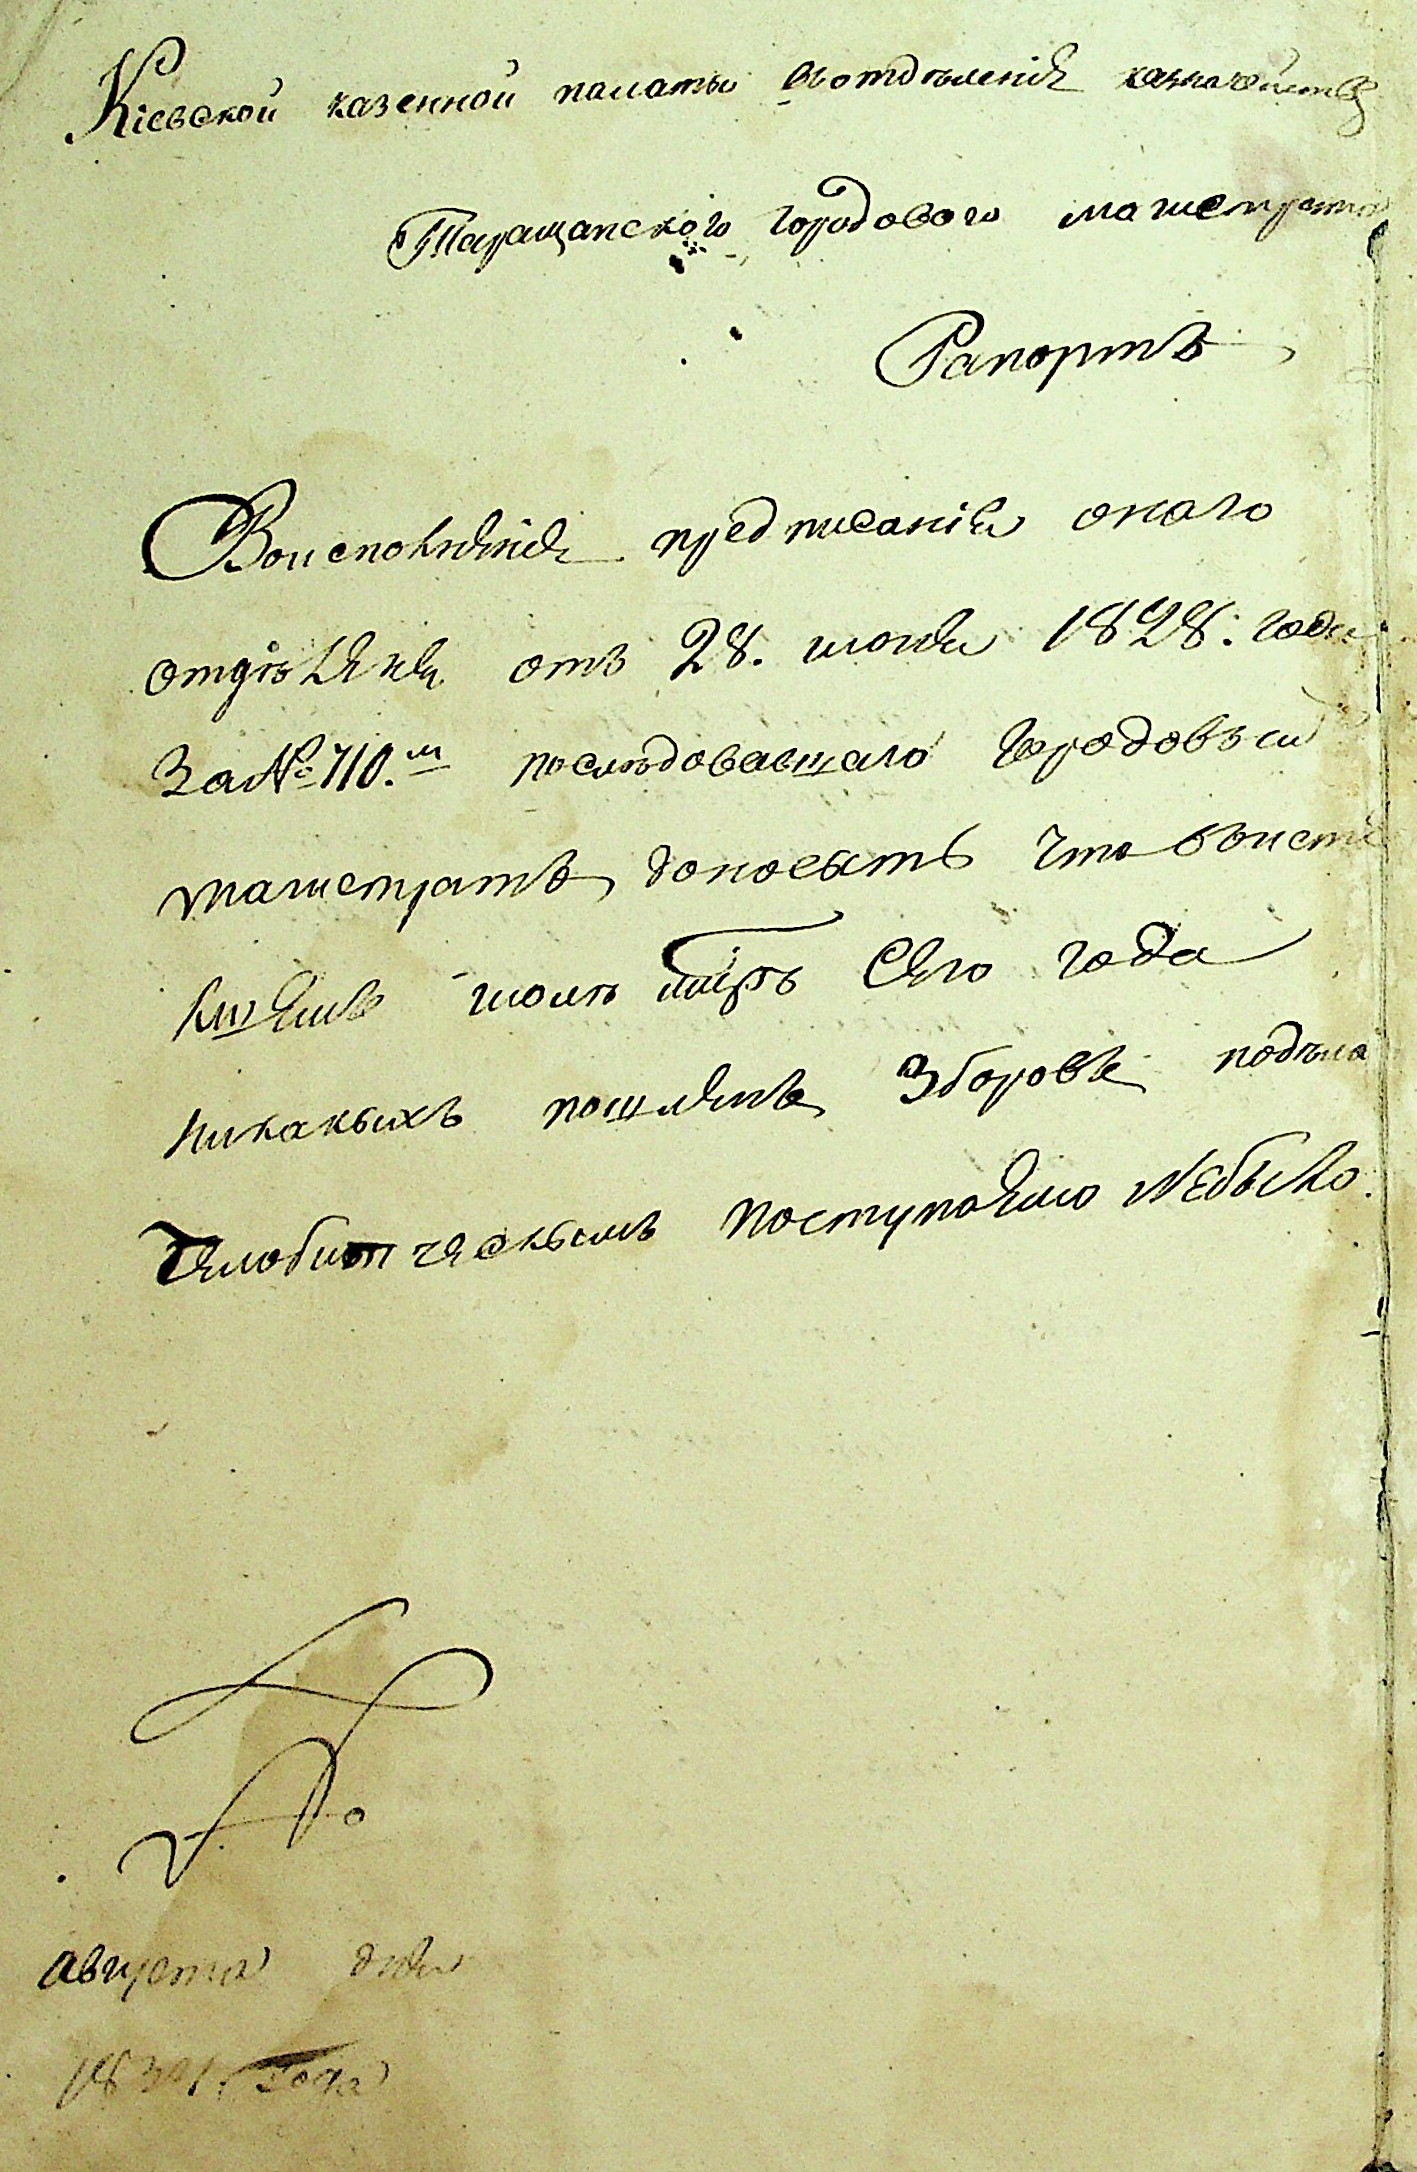 Кіевской казенной палаты въотделеніе казначейства
Таращанского городового магистрата
Рапортъ
Воисполненіе предписанія оного
отделенія отъ 28. июня 1828. года
За № 710.м последовавшаго городовый
магистратъ доноситъ что въисте
кшемъ июле мцѣ Сего года
никакыхъ пошленъ Зборовъ подела
Челобитческымъ поступаемо Небыло.
августа дня
года